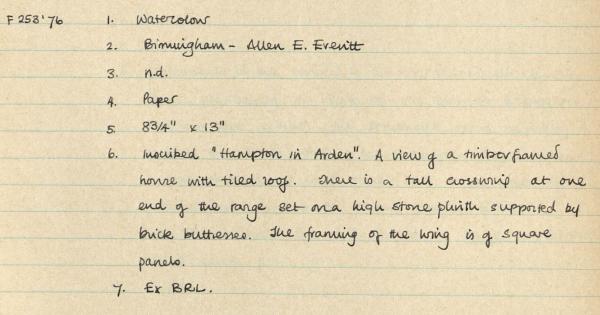 F 253'76 1. Watercolour
2. Birmingham - Allen E. Everitt
3. n.d.
4. Paper
5. 8 3/4" x 13"
6. Inscribed "Hampton in Arden". A view of a timberframed
house with tiled roof. There is a tall crosswing at one
end of the range set on a high stone plinth supported by
brick buttresses. The framing of the wing is of square
panels.
7. Ex BRL.